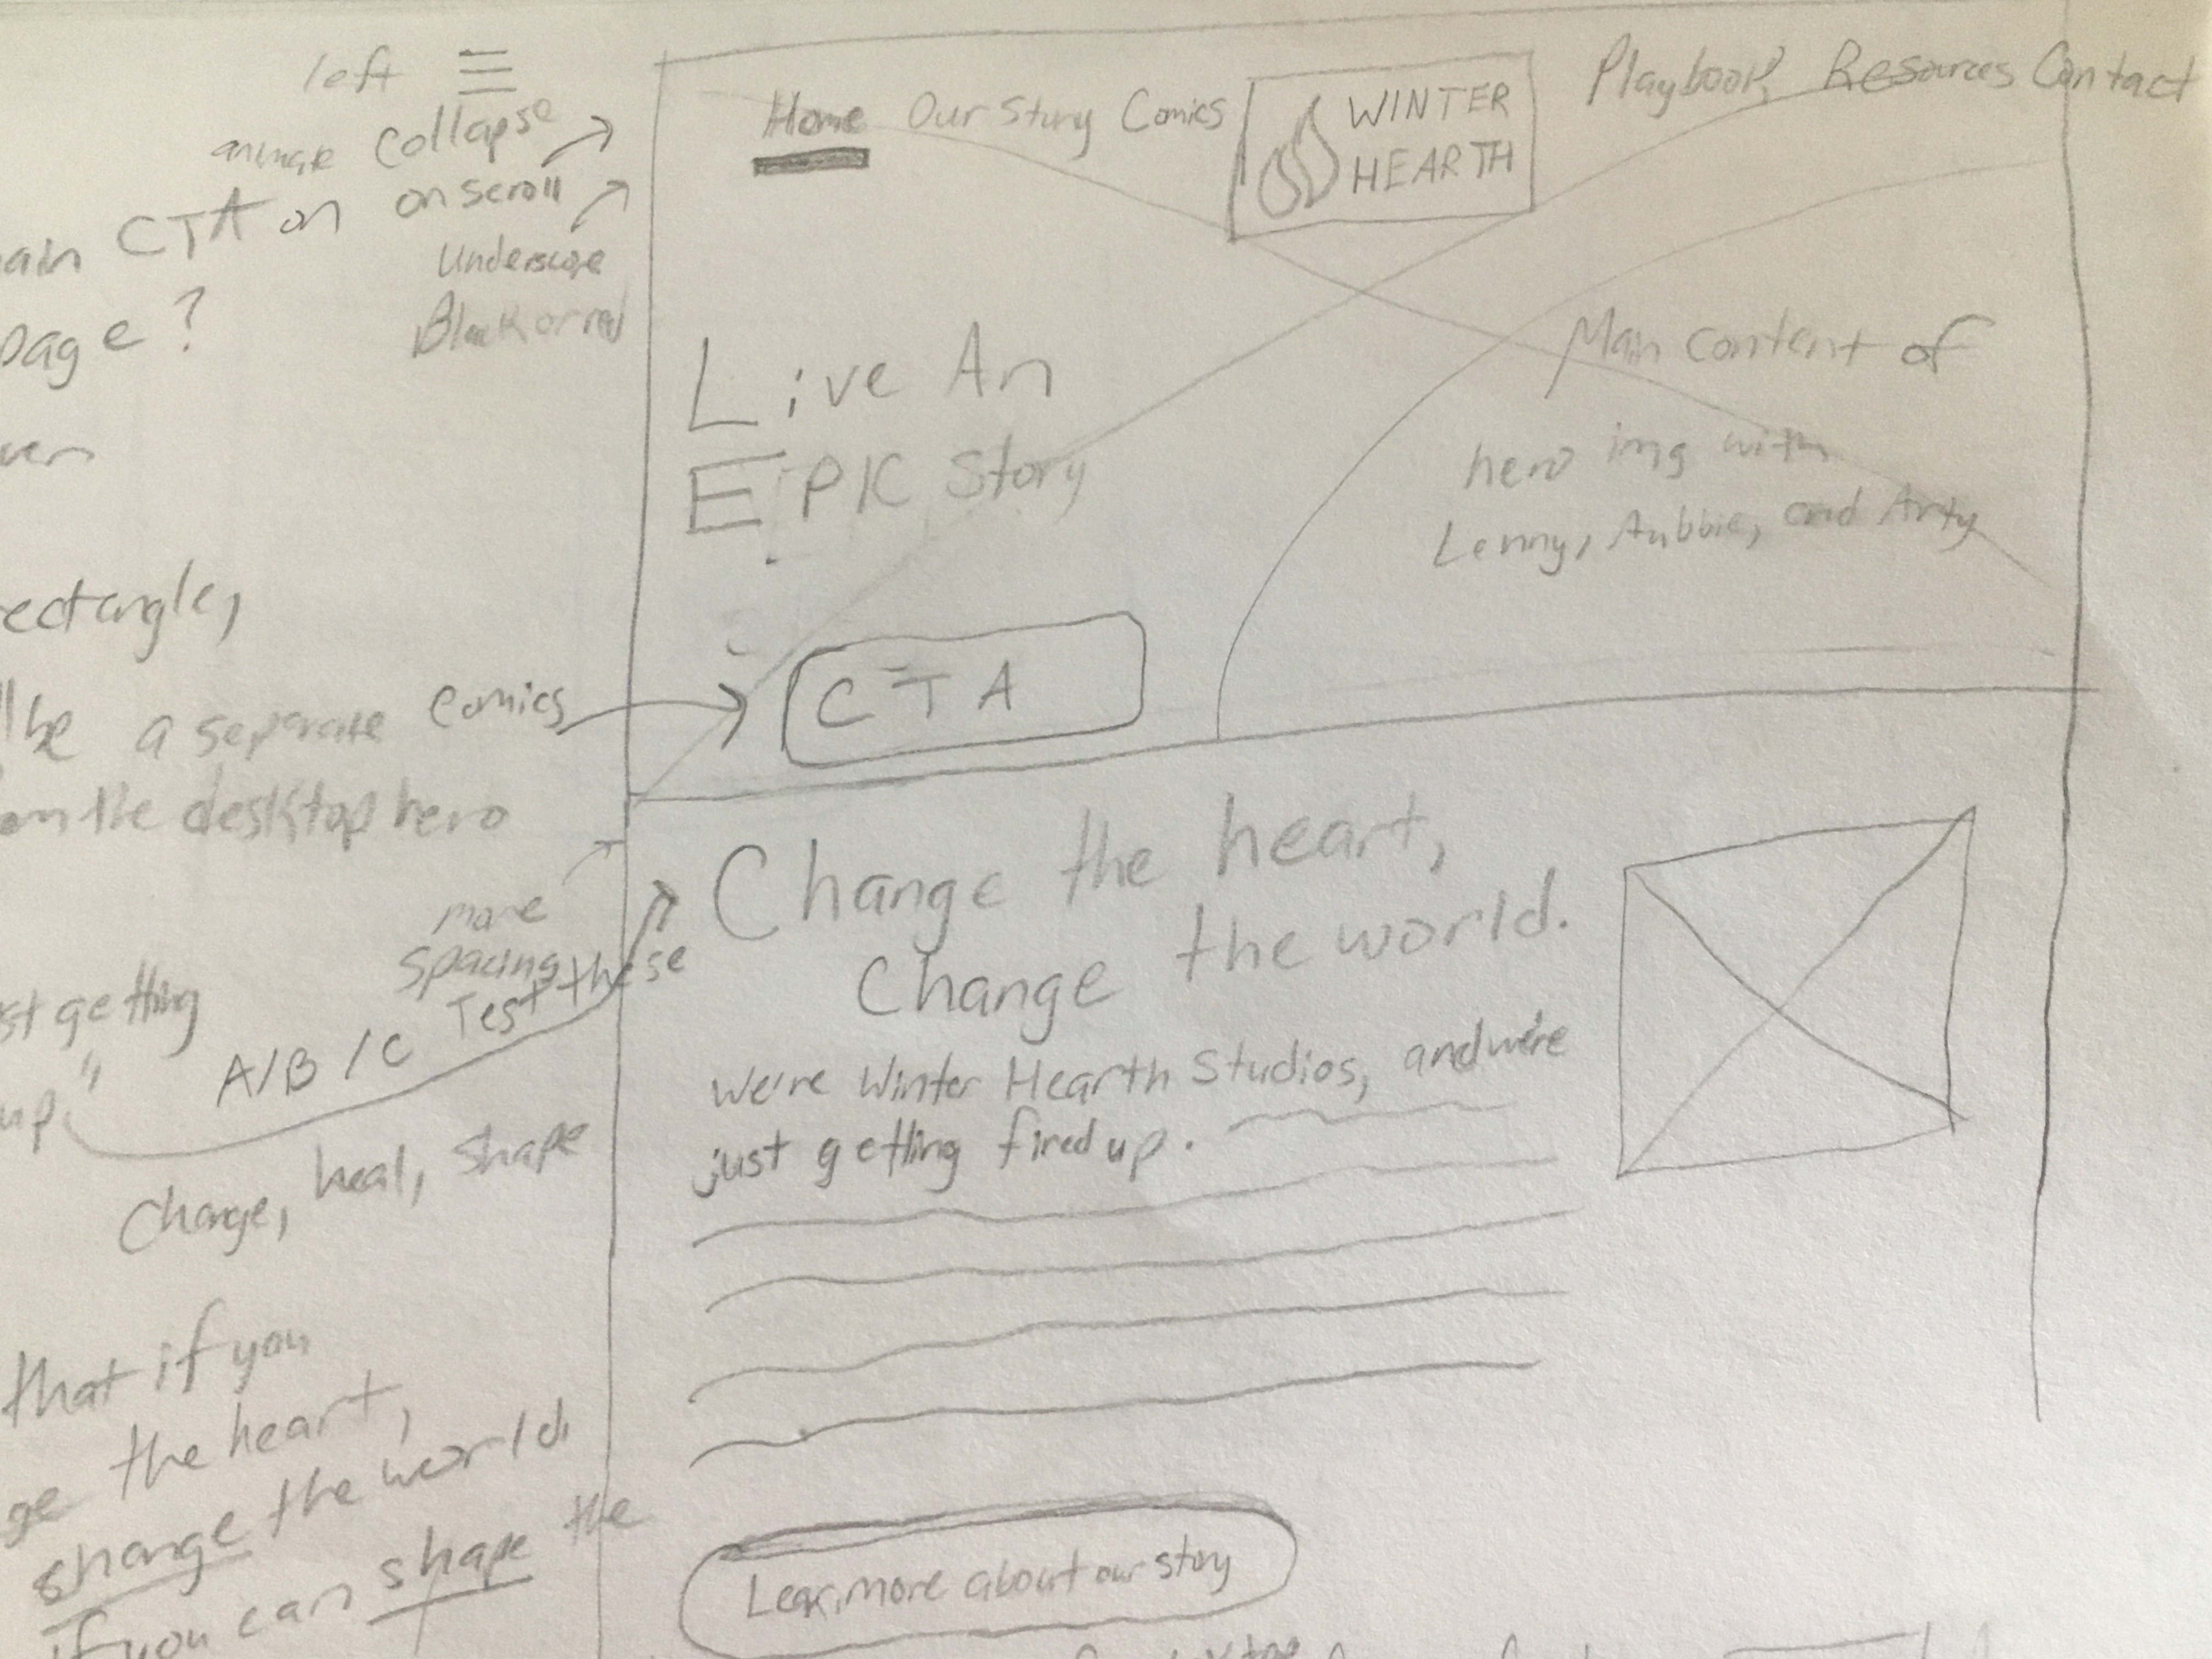 left
animate collapse
on scroll
Underscore
Black or red
ain CTA on
page?
ver
ectangle,
ll be a separate
om the desktop hero
Comics
more
spacing
st getting
up."
A/B/C Test these
Change, heal, shape
that if you
ge the heart,
change the world.
if you can shape the
Home Our Story Comics
WINTER
HEARTH
Playbook Resources Contact
Live An
EPIC Story
Main content of
hero img with
Lenny, Aubbie, and Arty
CTA
Change the heart,
Change the world.
We're Winter Hearth Studios, and we're
just getting fired up.
Learn more about our story